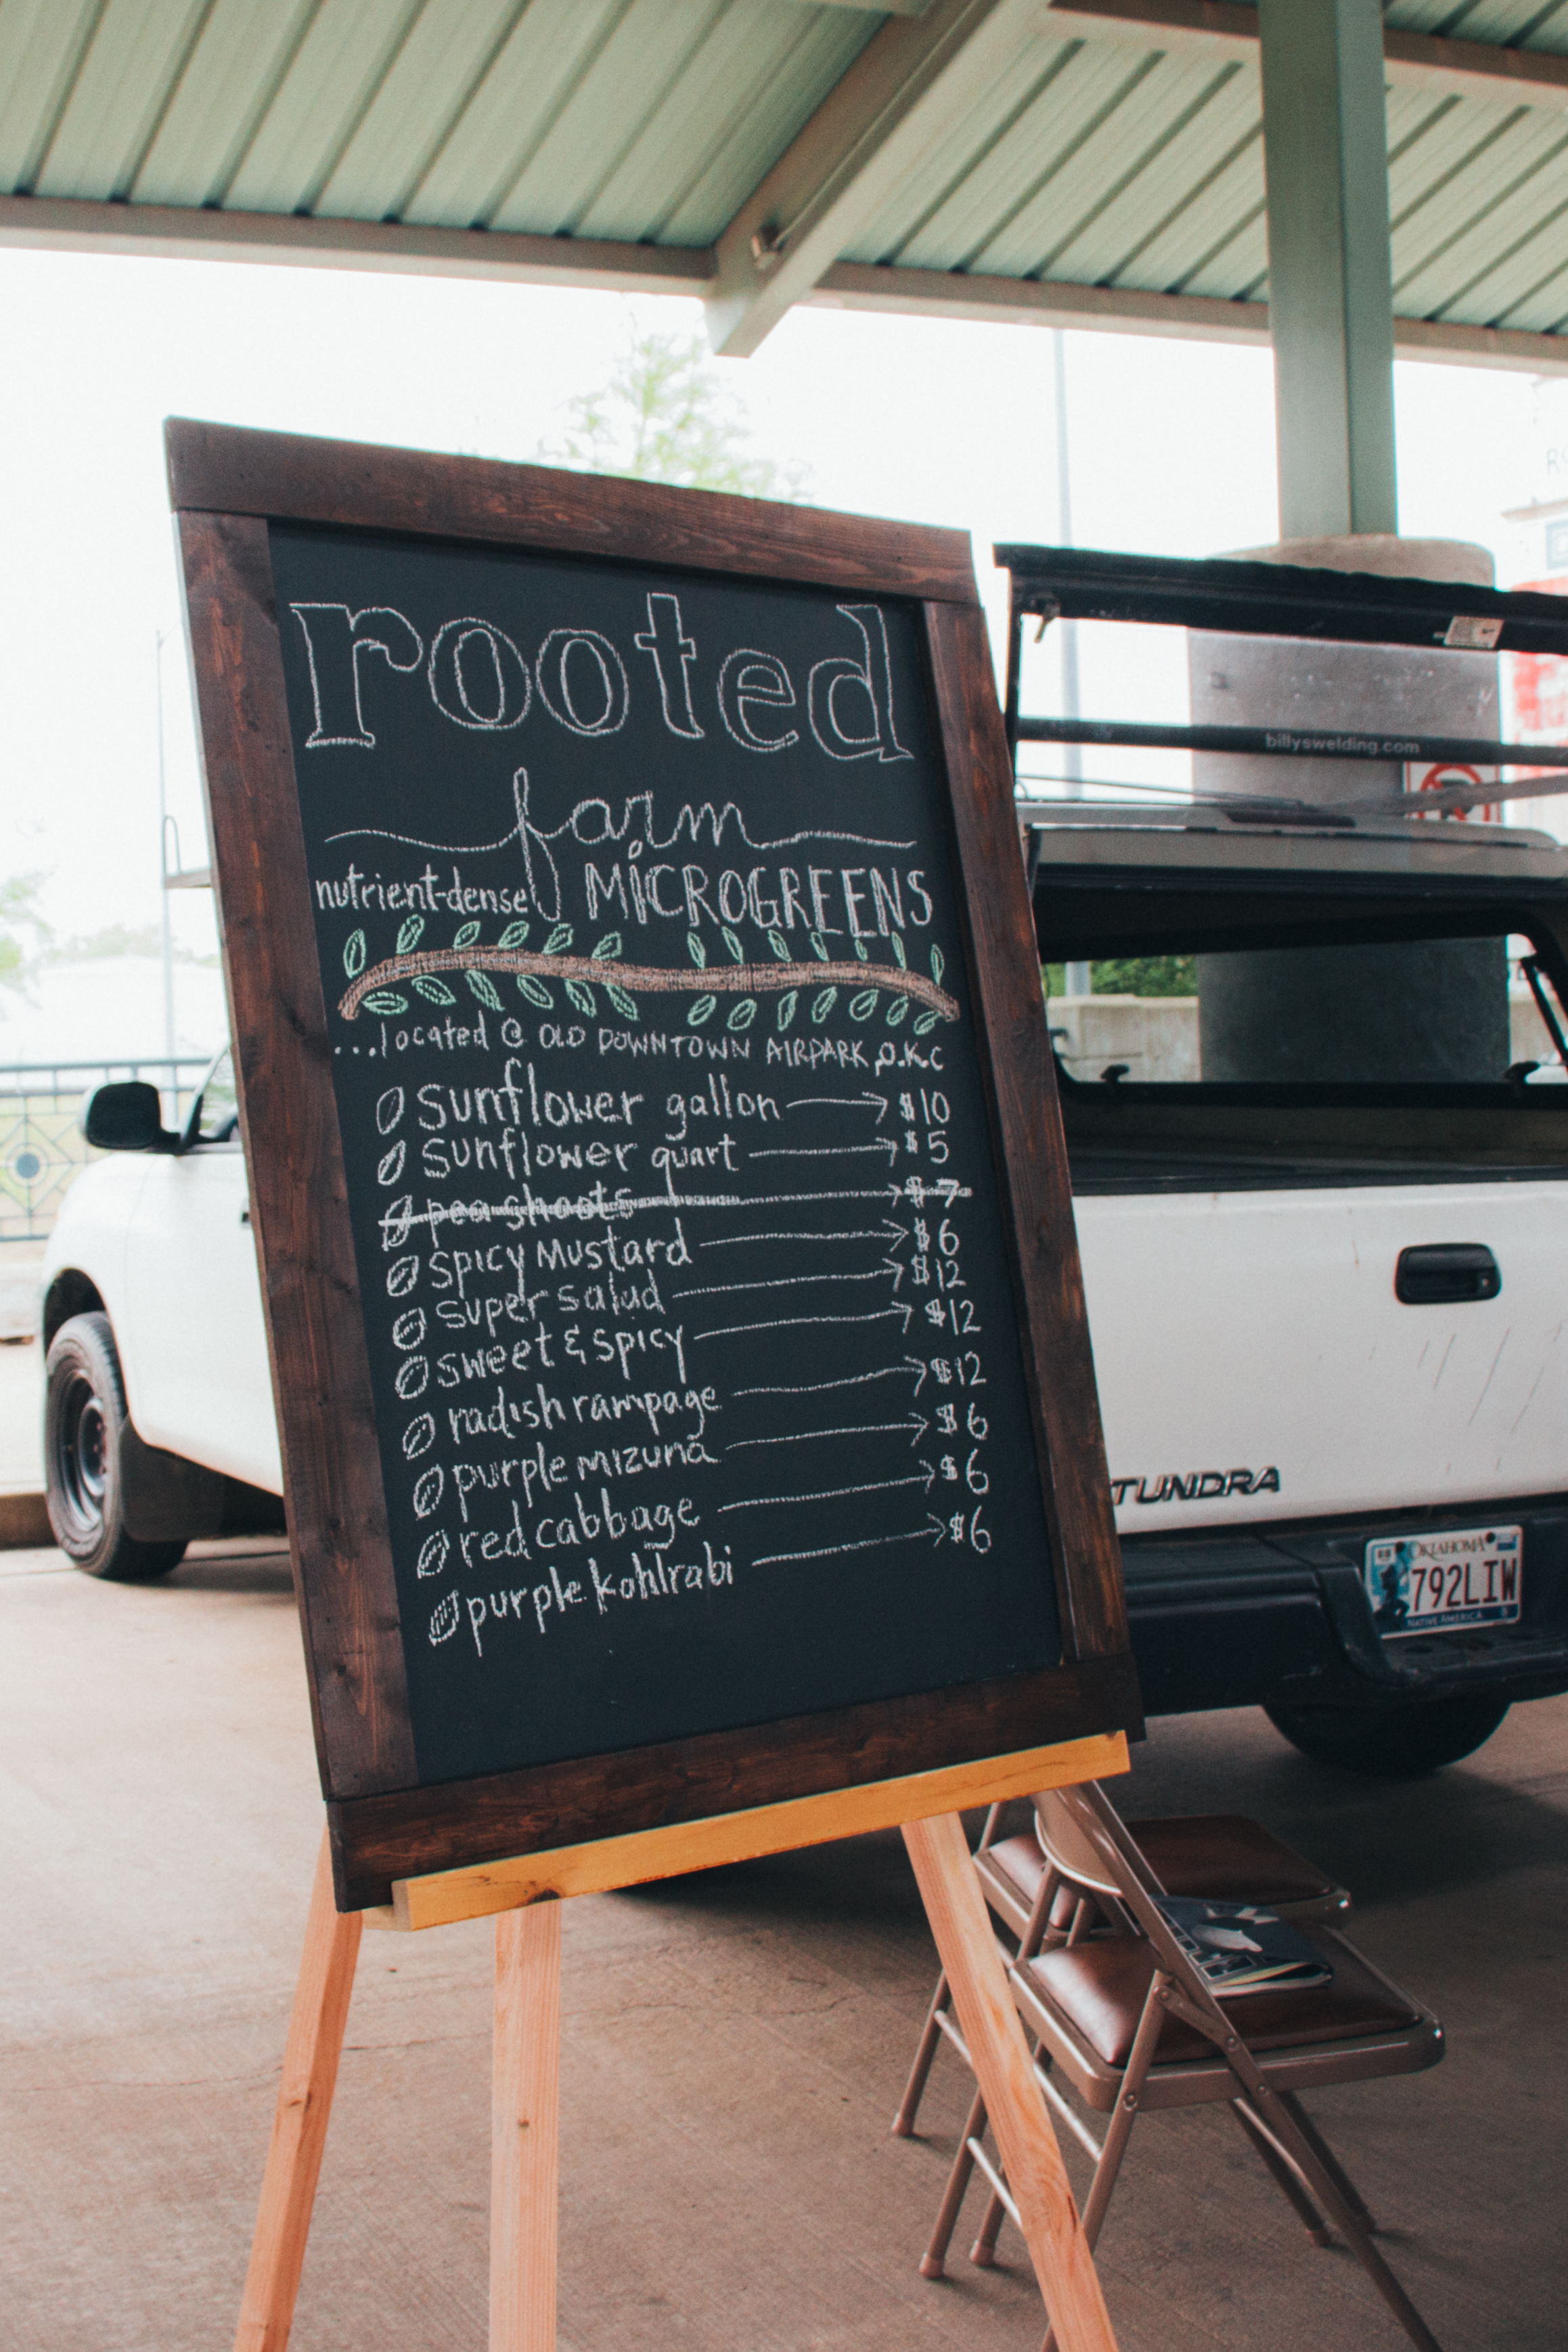 rooted
farm
nutrient-dense MiCROGREENS
...located @ OLD DOWNTOWN AIRPARK, O.K.C
sunflower gallon → $10
sunflower quart → $5
pea shoots → $7
spicy mustard → $6
super salad → $12
sweet & spicy → $12
radish rampage → $12
purple mizuna → $6
red cabbage → $6
purple kohlrabi → $6
billyswelding.com
TUNDRA
OKLAHOMA
792LIW
NATIVE AMERICA